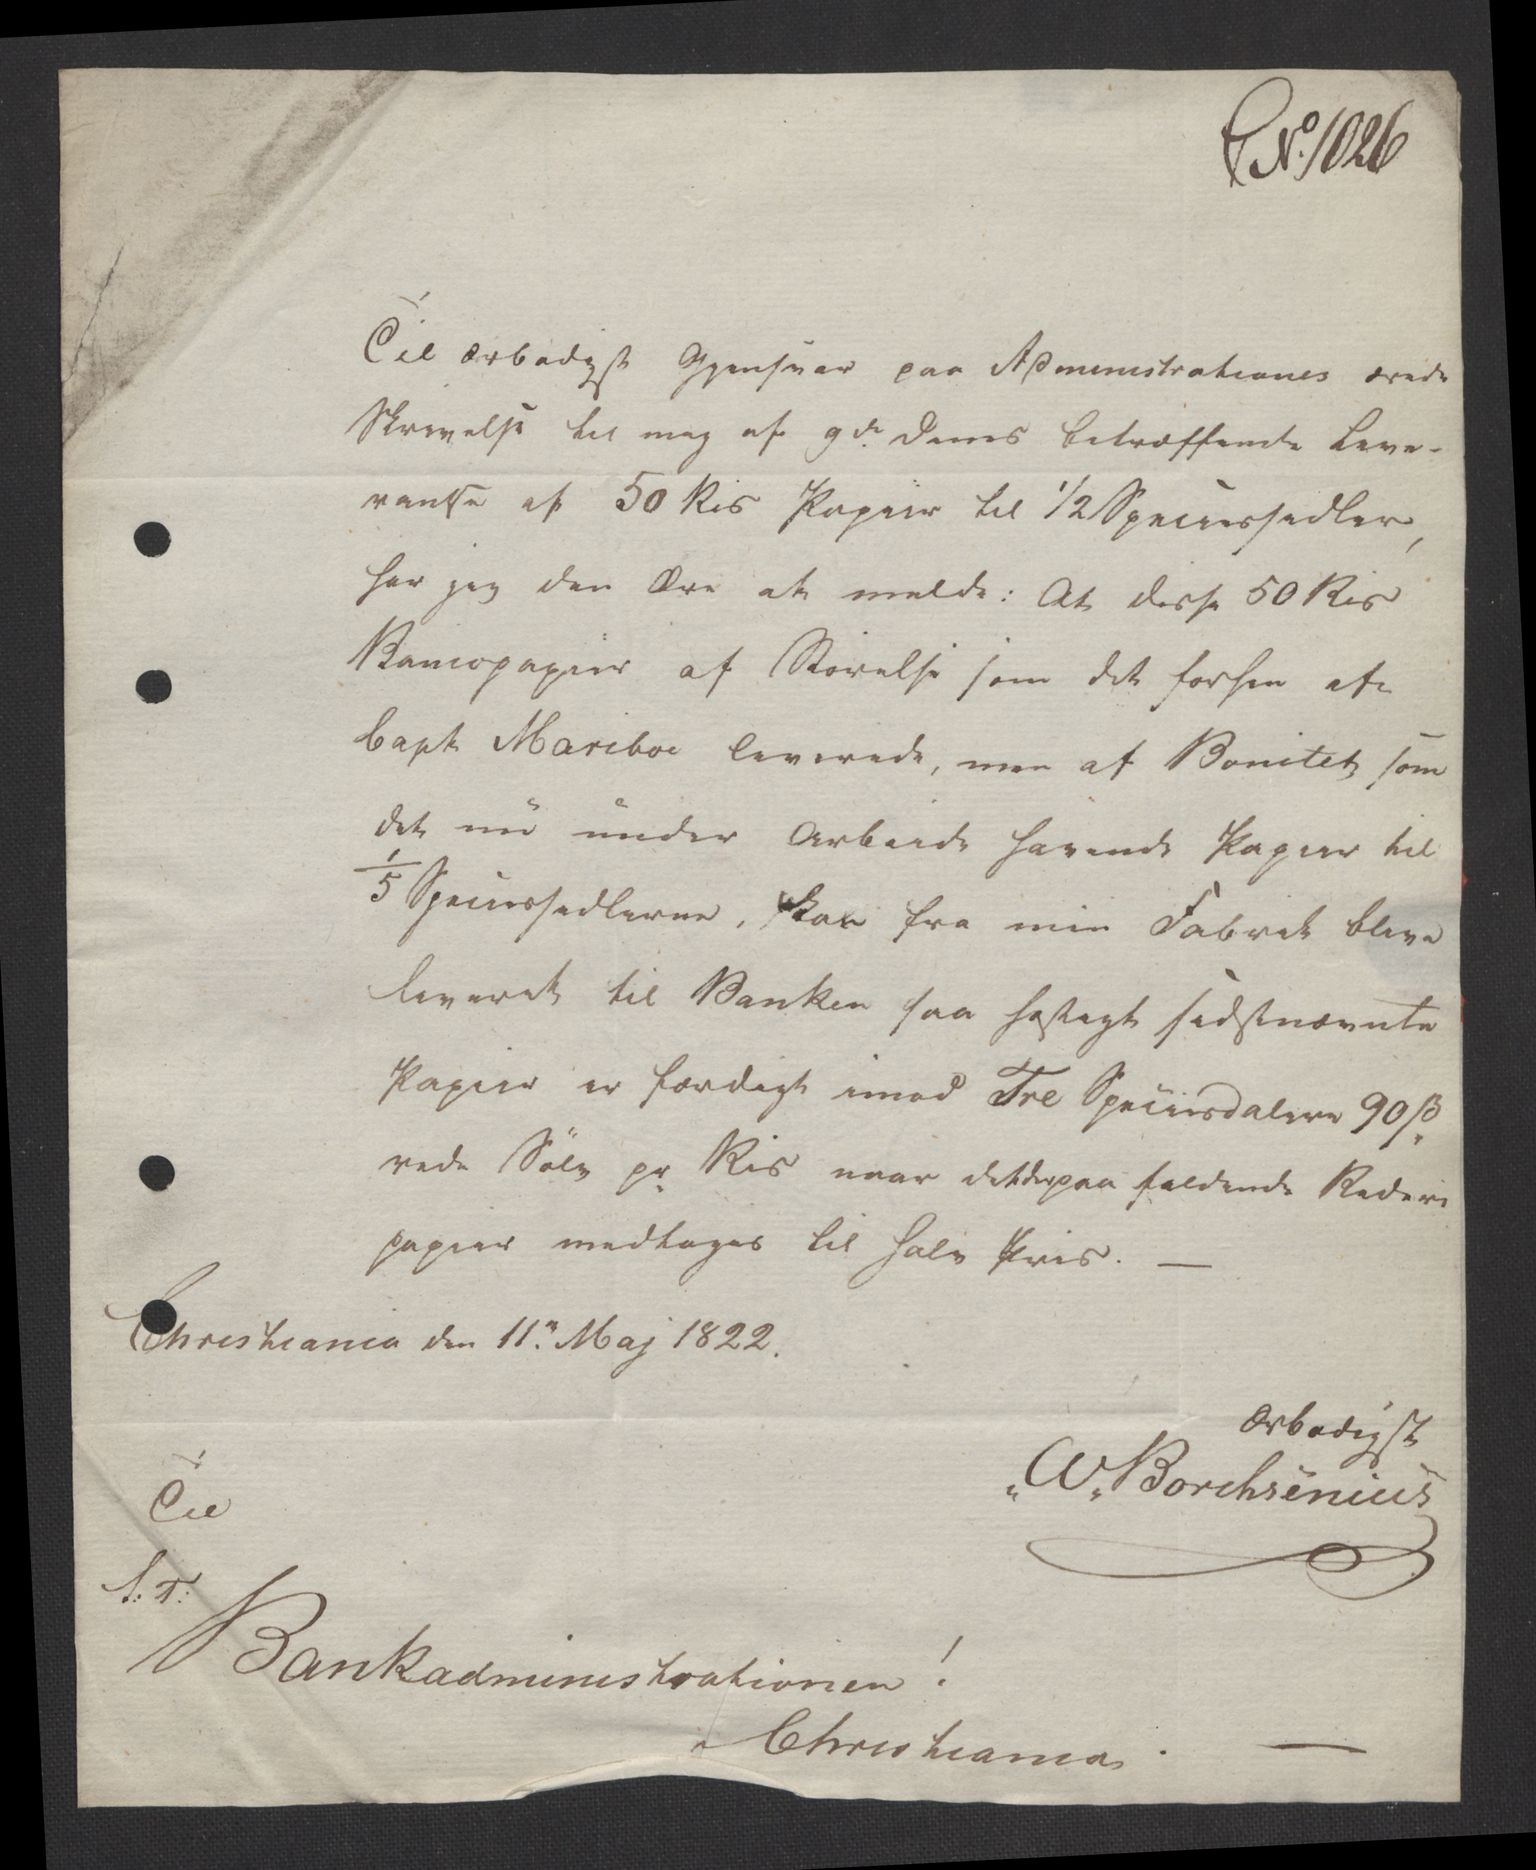 No. 1026
Til ærbødigst Gjensvar paa Administrationes ærede
Skrivelse til mig af 9de. Dennes betræffende Leve-
rantse af 50 Ris Papiir til 1/2 Speciessedler,
har jeg den Ære at melde: At disse 50 Ris
Bancopapiir af Störelse som det forhen af
Capt Mariboe leverede, men af Bonitet som
det nu under Arbeide havende Papiir til
1/5 Speciessedlerne, skal fra min Fabrik blive
leveret til Banken saa hastigt sidstnævnte
Papiir er færdigt imod Tre Speciesdalere 90 ß
rede Sölv pr Ris naar det derpaa faldende
papiir medtages til halv Priis. —
Christiania den 11te. Maj 1822.
Ærbødigst
W. Borchsenius
Til
S: T:
Bankadministrationen!
i Christiania. —